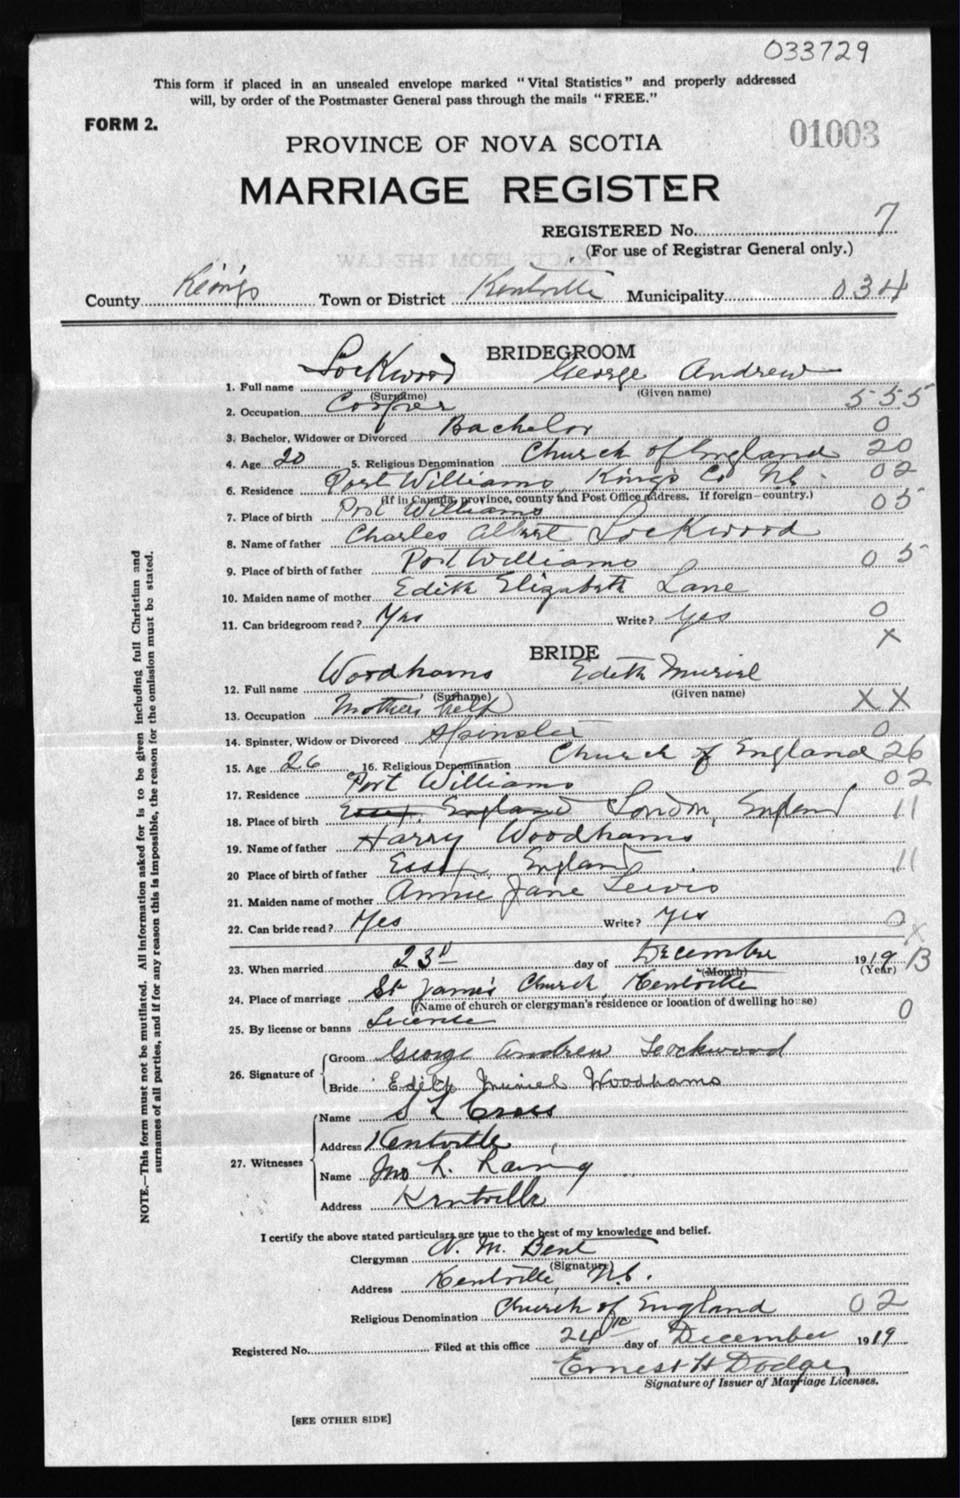 033729
This form if placed in an unsealed envelope marked "Vital Statistics" and properly addressed
will, by order of the Postmaster General pass through the mails "FREE."
FORM 2.
01003
PROVINCE OF NOVA SCOTIA
MARRIAGE REGISTER
REGISTERED No. 7
(For use of Registrar General only.)
County King's Town or District Kentville Municipality 034
BRIDEGROOM
1. Full name Lockwood George Andrew
(Surname) (Given name)
2. Occupation Cooper 555
3. Bachelor, Widower or Divorced Bachelor 0
4. Age 20 5. Religious Denomination Church of England 20
6. Residence Port Williams King's Co N.S. 02
(If in Canada, province, county and Post Office address. If foreign—country.)
7. Place of birth Port Williams 05
8. Name of father Charles Albert Lockwood
9. Place of birth of father Port Williams 05
10. Maiden name of mother Edith Elizabeth Lane
11. Can bridegroom read? Yes Write? Yes 0
X
BRIDE
12. Full name Woodhams Edith Muriel
(Surname) (Given name)
13. Occupation Mother's help XX
14. Spinster, Widow or Divorced Spinster 0
15. Age 26 16. Religious Denomination Church of England 26
17. Residence Port Williams 02
18. Place of birth Essex England London, England 11
19. Name of father Harry Woodhams
20 Place of birth of father Essex, England 11
21. Maiden name of mother Annie Jane Lewis
22. Can bride read? Yes Write? Yes 0
X
23. When married 23d day of December 1919 B
(Month) (Year)
24. Place of marriage St James Church, Kentville
(Name of church or clergyman's residence or location of dwelling house)
25. By license or banns License 0
26. Signature of Groom George Andrew Lockwood
Bride Edith Muriel Woodhams
27. Witnesses
Name S L Cross
Address Kentville
Name Jno L. Laing
Address Kentville
I certify the above stated particulars are true to the best of my knowledge and belief.
Clergyman N. M. Bent
(Signature)
Address Kentville N.S.
Religious Denomination Church of England 02
Registered No. Filed at this office 24th day of December 1919
Ernest H Dodge
Signature of Issuer of Marriage Licenses.
[SEE OTHER SIDE]
NOTE.—This form must not be mutilated. All information asked for is to be given including full Christian and
surnames of all parties, and if for any reason this is impossible, the reason for the omission must be stated.